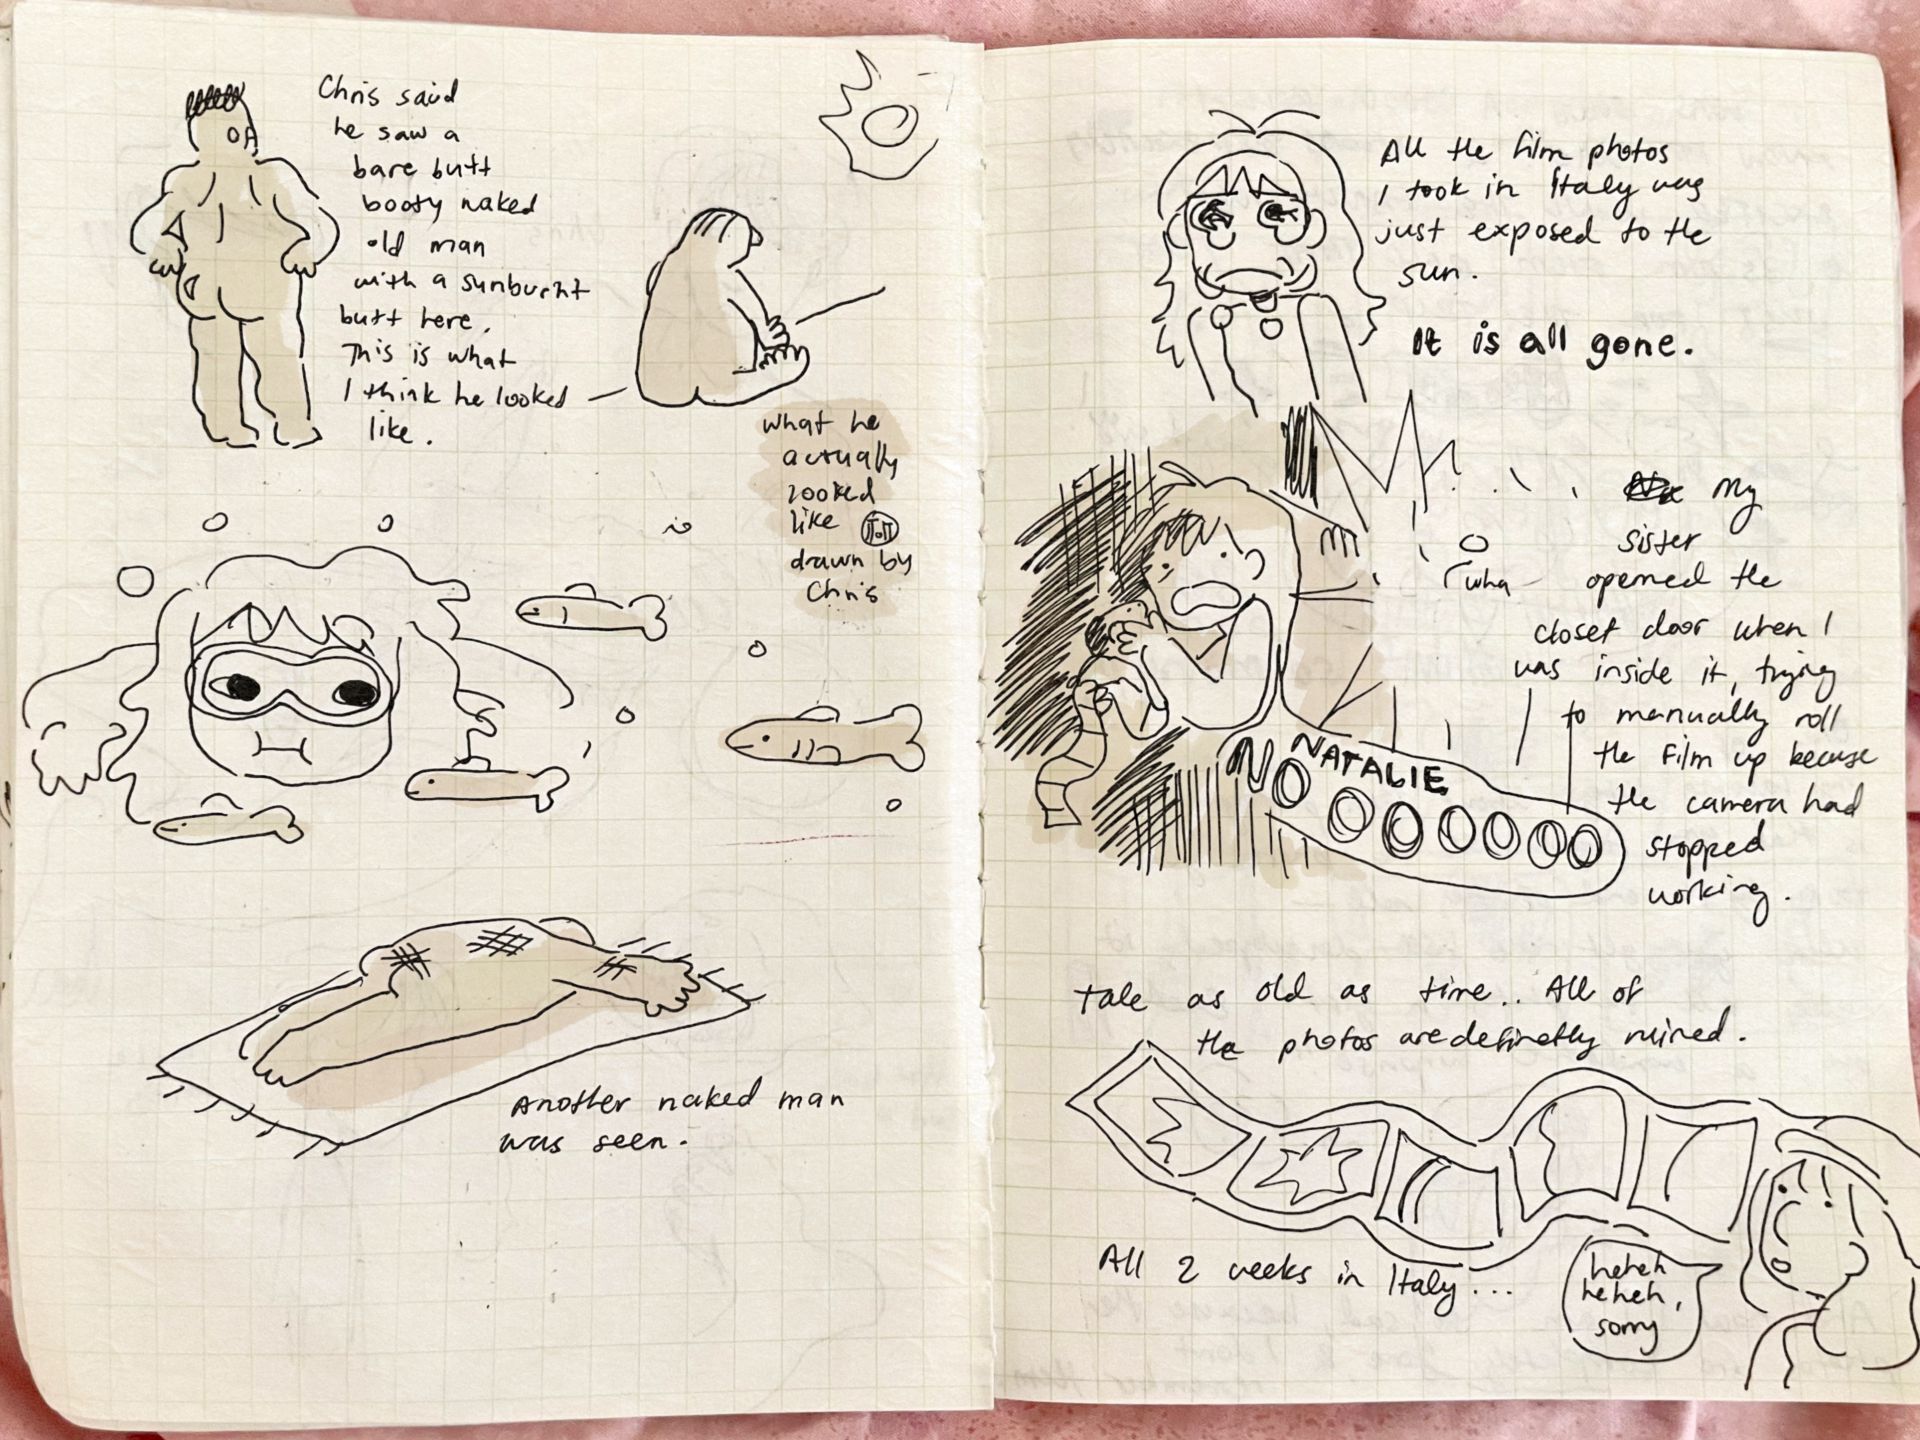 Chris said
he saw a
bare butt
booty naked
old man
with a sunburnt
butt here.
This is what
I think he looked
like.
what he
actually
looked
like
drawn by
Chris
Another naked man
was seen.
All the film photos
I took in Italy was
just exposed to the
sun.
It is all gone.
My
sister
opened the
closet door when I
was inside it, trying
to manually roll
the film up because
the camera had
stopped
working.
wha
NATALIE
NOOOOOOO
tale as old as time.. All of
the photos are definetly ruined.
All 2 weeks in Italy...
heheh
heheh,
sorry